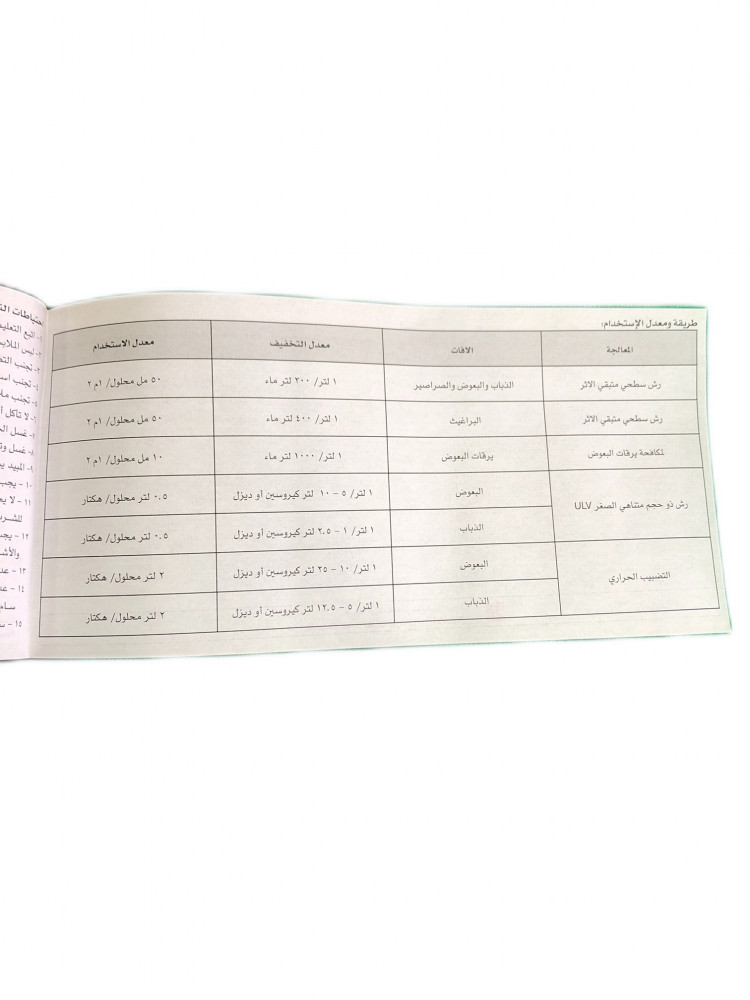 طريقة ومعدل الإستخدام:
المعالجة الافات معدل التخفيف معدل الاستخدام
رش سطحي متبقي الاثر الذباب والبعوض والصراصير ١ لتر/ ٢٠٠ لتر ماء ٥٠ مل محلول/ ١م ٢
رش سطحي متبقي الاثر البراغيث ١ لتر/ ٤٠٠ لتر ماء ٥٠ مل محلول/ ١م ٢
لمكافحة يرقات البعوض يرقات البعوض ١ لتر/ ١٠٠٠ لتر ماء ١٠ مل محلول/ ١م ٢
رش ذو حجم متناهي الصغر ULV البعوض ١ لتر/ ٥ - ١٠ لتر كيروسين أو ديزل ٠.٥ لتر محلول/ هكتار
الذباب ١ لتر/ ١ - ٢.٥ لتر كيروسين أو ديزل ٠.٥ لتر محلول/ هكتار
التضبيب الحراري البعوض ١ لتر/ ١٠ - ٢٥ لتر كيروسين أو ديزل ٢ لتر محلول/ هكتار
الذباب ١ لتر/ ٥ - ١٢.٥ لتر كيروسين أو ديزل ٢ لتر محلول/ هكتار
٨- غسل
٩- المبيد
١٠ - يجب
١١ - لا
١٢ - يجب
١٣ -
١٤ -
١٥ -